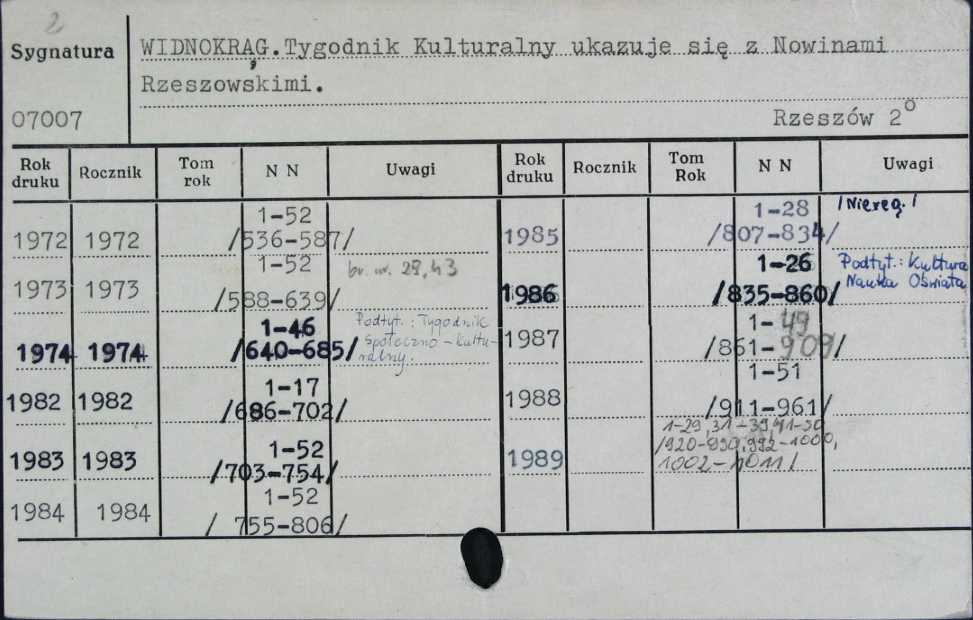 2
Sygnatura
WIDNOKRĄG.Tygodnik Kulturalny ukazuje się z Nowinami
Rzeszowskimi.
07007
Rzeszów 2°
Rok druku Rocznik Tom rok N N Uwagi Rok druku Rocznik Tom Rok N N Uwagi
1972 1972 1-52 /536-587/
1973 1973 1-52 /588-639/ br. nr. 28,43
1974 1974 1-46 /640-685/ Podtyt.: Tygodnik
Społeczno-Kultu-
ralny.
1982 1982 1-17 /686-702/
1983 1983 1-52 /703-754/
1984 1984 1-52 / 755-806/
1985 1-28 /807-834/ /Niereg./
1986 1-26 /835-860/ Podtyt.: Kultura
Nauka Oświata
1987 1-49 /861-909/
1988 1-51 /911-961/
1989 1-29,31-39,41-50
/920-990,992-1000,
1002-1011/